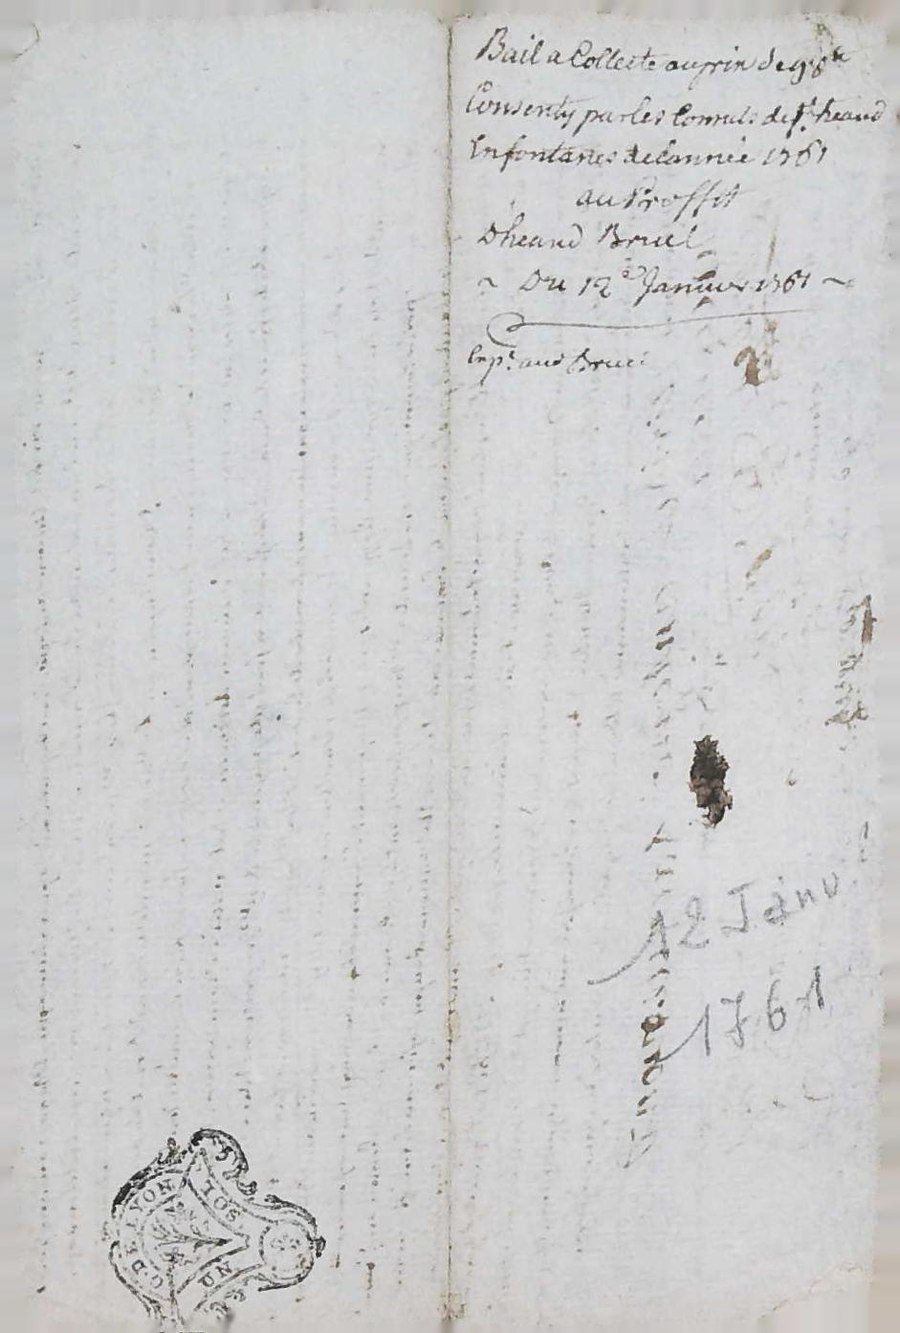 Bail a Collecte au prix de 9 d
Consenty par les Consuls de St. heand
En fontanes de l'année 1761
au Proffit
Dheand Bruel
~ Du 12e Janvier 1761 ~
aud Bruel
12 Janv
1761
G. DE LYON
UN SOL